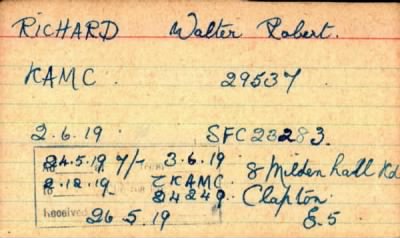 RICHARD Walter Robert.
RAMC. 29537
2.6.19. SFC 23283.
24.5.19 7/- 3.6.19. 8 Mildenhall Rd
2.12.19. RAMC. Clapton
24249
Received 26.5.19 E.5